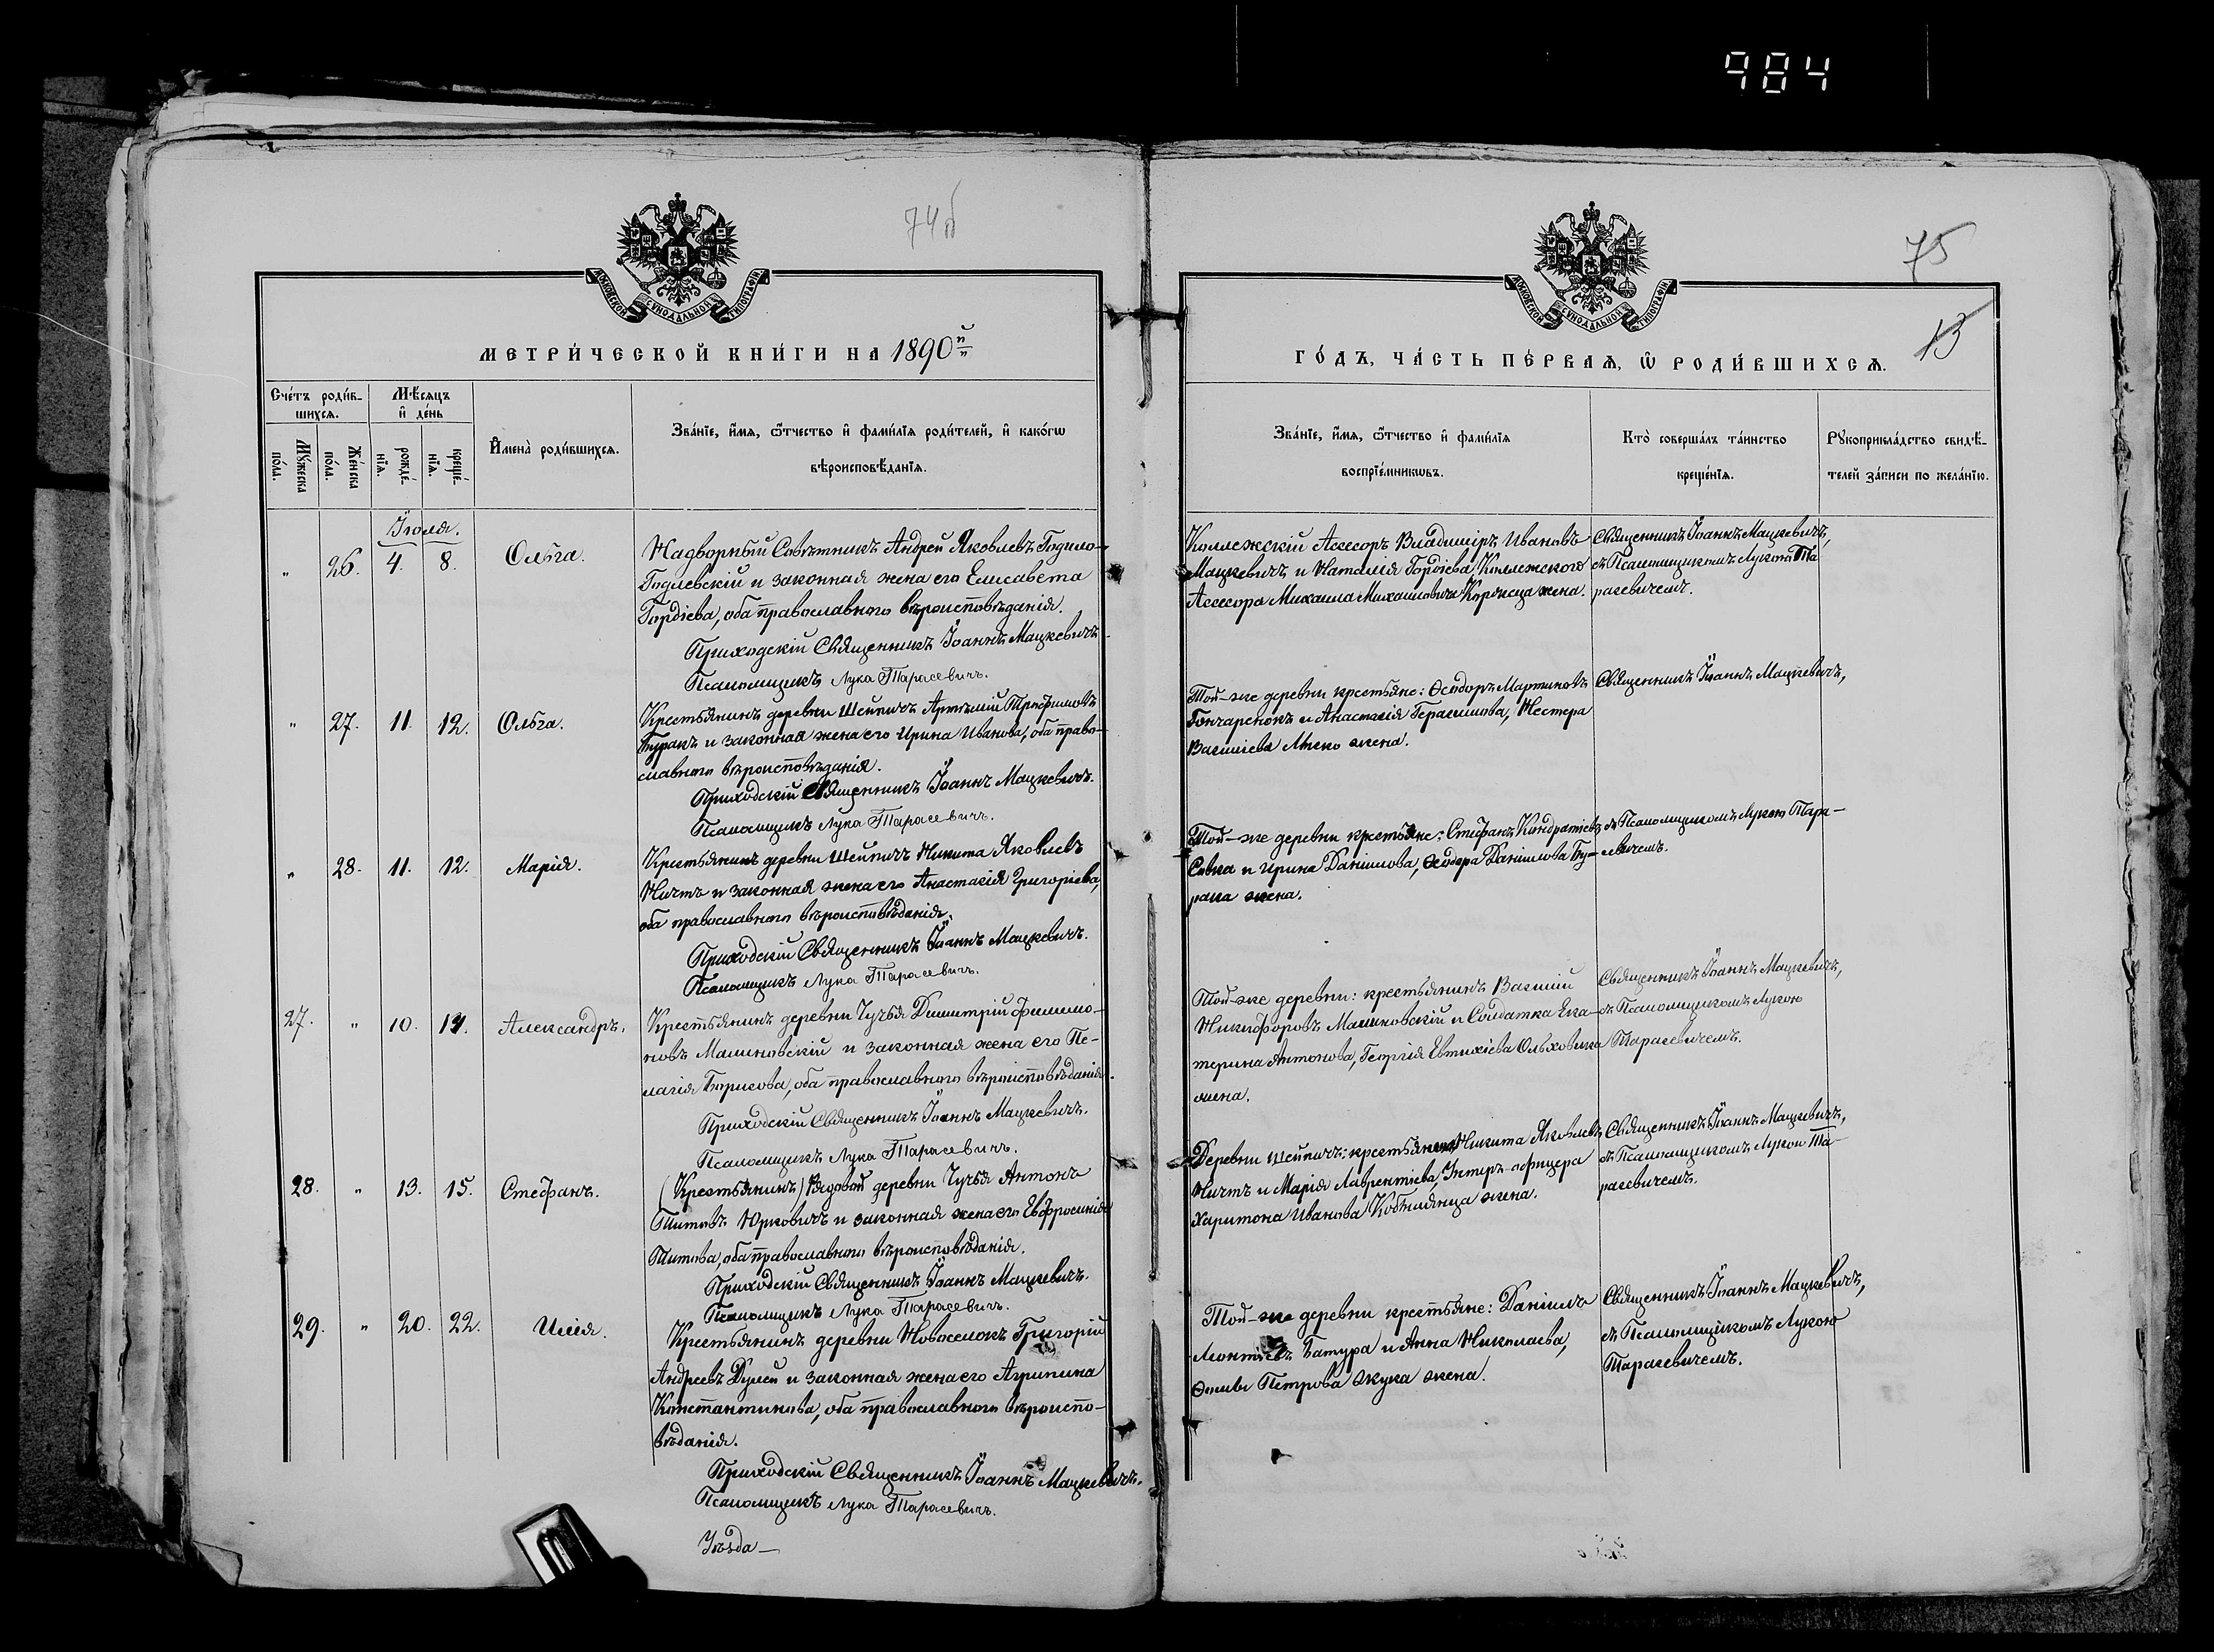 984
74б
75
13
МОСКОВСКОЙ СУНОДАЛЬНОЙ ТИПОГРАФІИ
МОСКОВСКОЙ СУНОДАЛЬНОЙ ТИПОГРАФІИ
МЕТРИ́ЧЕСКОЙ КНИ́ГИ НА 1890й
ГО́ДЪ, ЧА́СТЬ ПЕ́РВАѦ, Ѡ҆ РОДИ́ВШИХСѦ.
Сче́тъ роди́в-
шихсѧ.
Мѣ́сѧцъ
и҆ де́нь
Мꙋ́жеска по́ла.
Же́нска по́ла.
рожде́-
нїѧ.
креще́-
нїѧ.
И҆мена̀ роди́вшихсѧ.
Зва́нїе, и҆́мѧ, ѻ҆́тчество и҆ фами́лїѧ роди́телей, и҆ како́гѡ
вѣроисповѣ́данїѧ.
Зва́нїе, и҆́мѧ, ѻ҆́тчество и҆ фами́лїѧ
воспрїе́мникѡвъ.
Кто̀ соверша́лъ та́инство
креще́нїѧ.
Рꙋкоприкла́дство свидѣ́-
телей за́писи по жела́нїю.
Іюля.
" 26. 4. 8. Ольга.
Надворный Совѣтникъ Андрей Яковлевъ Годило-
Годлевскій и законная жена его Елисавета
Гордіева, оба православнаго вѣроисповѣданія.
Приходскій Священникъ Іоаннъ Мацкевичъ.
Псаломщикъ Лука Тарасевичъ.
Коллежскій Асесоръ Владиміръ Ивановъ
Мацкевичъ и Наталія Гордіева, Коллежскаго
Асесора Михаила Михайловича жена.
Священникъ Іоаннъ Мацкевичъ,
съ Псаломщикомъ Лукою Та
расевичемъ.
" 27. 11. 12. Ольга.
Крестьянинъ деревни Шейпичъ Артемій Трофимовъ
Буракъ и законная жена его Ирина Иванова, оба право-
славнаго вѣроисповѣданія.
Приходскій Священникъ Іоаннъ Мацкевичъ.
Псаломщикъ Лука Тарасевичъ.
Той-же деревни крестьяне: Ѳеодоръ Мартиновъ
Гончаренокъ и Анастасія Герасимова, Нестера
Василіева жена.
Священникъ Іоаннъ Мацкевичъ,
" 28. 11. 12. Марія.
Крестьянинъ деревни Шейпичъ Никита Яковлевъ
Ничть и законная жена его Анастасія Григоріева,
оба православнаго вѣроисповѣданія.
Приходскій Священникъ Іоаннъ Мацкевичъ.
Псаломщикъ Лука Тарасевичъ.
Той-же деревни крестьяне: Стефанъ Кондратіевъ
Савка и Ирина Даніилова, Ѳеодора Даніилова Бу-
рака жена.
съ Псаломщикомъ Лукою Тара-
севичемъ.
27. " 10. 14. Александръ.
Крестьянинъ деревни Чучья Димитрій Филимо-
новъ Малиновскій и законная жена его Пе-
лагія Борисова, оба православнаго вѣроисповѣданія.
Приходскій Священникъ Іоаннъ Мацкевичъ.
Псаломщикъ Лука Тарасевичъ.
Той-же деревни: крестьянинъ Василій
Никифоровъ Малиновскій и Солдатка Ека-
терина Антонова, Георгія Евтихіева Ольховика
жена.
Священникъ Іоаннъ Мацкевичъ,
съ Псаломщикомъ Лукою
Тарасевичемъ.
28. " 13. 15. Стефанъ.
(Крестьянинъ) Рядовой деревни Чучья Антонъ
Титовъ Юрковичъ и законная жена его Евфросинія
Титова, оба православнаго вѣроисповѣданія.
Приходскій Священникъ Іоаннъ Мацкевичъ.
Псаломщикъ Лука Тарасевичъ.
Деревни Шейпичъ: Никита Яковлевъ
Ничть и Марія Лаврентіева, Унтеръ-офицера
Харитона Иванова жена.
Священникъ Іоаннъ Мацкевичъ,
съ Псаломщикомъ Лукою Та-
расевичемъ.
29. " 20. 22. Илія.
Крестьянинъ деревни Новоселокъ Григорій
Андреевъ Дулей и законная жена его Агрипина
Константинова, оба православнаго вѣроиспо-
вѣданія.
Приходскій Священникъ Іоаннъ Мацкевичъ.
Псаломщикъ Лука Тарасевичъ.
Той-же деревни крестьяне: Даніилъ
Леонтіевъ Батура и Анна Николаева,
Ѳомы Петрова Жука жена.
Священникъ Іоаннъ Мацкевичъ,
съ Псаломщикомъ Лукою
Тарасевичемъ.
Уѣзда —